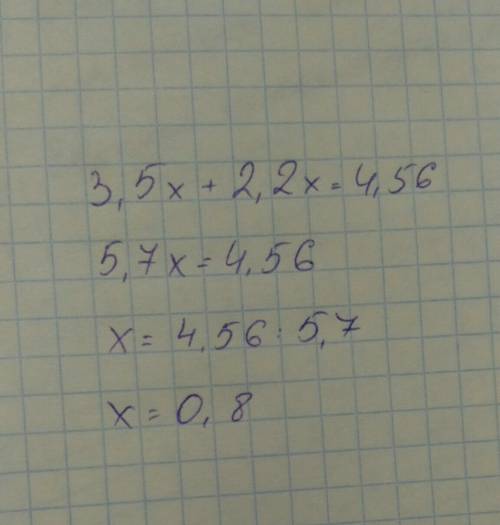 3,5x + 2,2x = 4,56
5,7x = 4,56
x = 4,56 : 5,7
x = 0,8